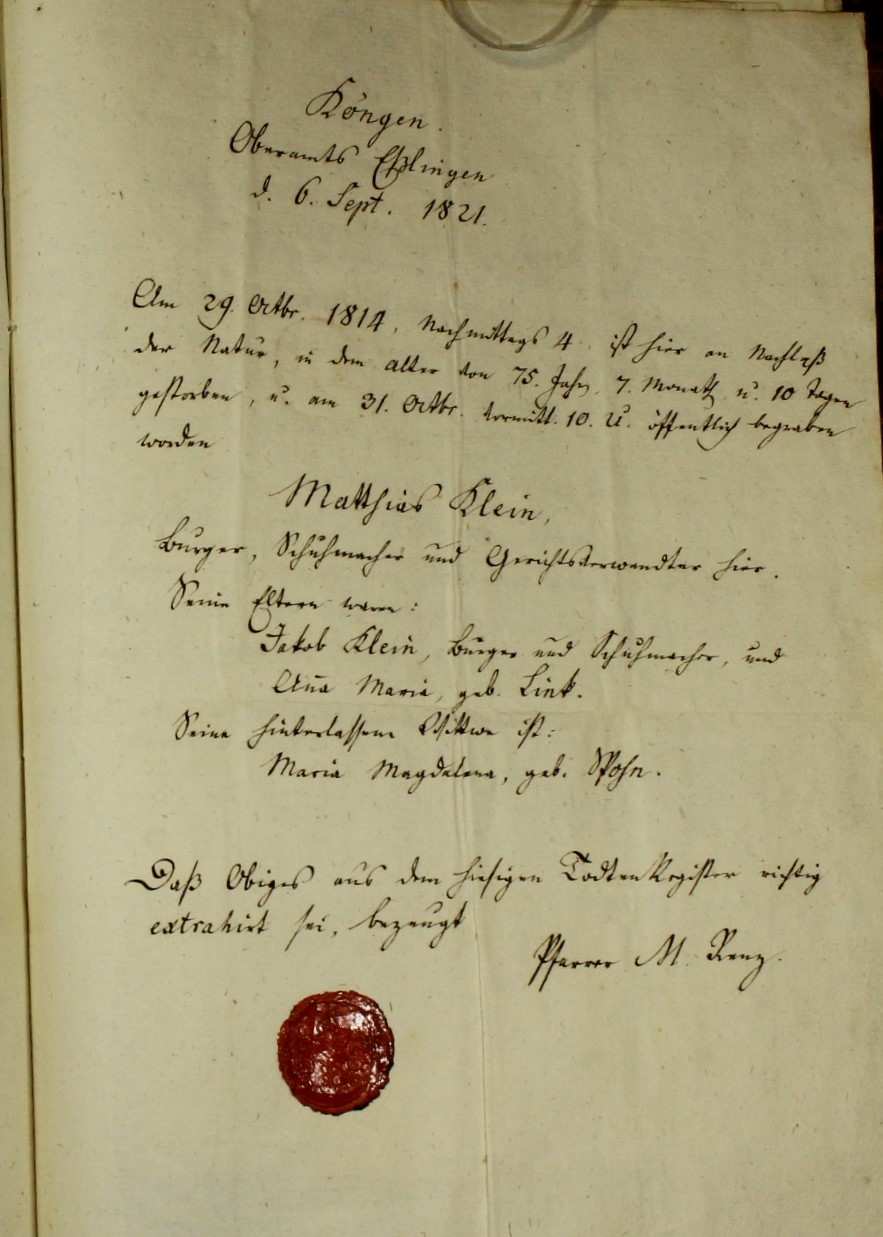 Köngen.
Oberamts Eßlingen
d. 6. Sept. 1821.
Am 29. Octbr. 1814, Nachmittags 4. ist hier an Nachlaß
der Natur, in dem Alter von 75. Jahr, 7. Monath u. 10 Tagen
gestorben, u. am 31. Octbr. Vormitt. 10. U. öffentlich begraben
worden
Matthias Klein,
Burger, Schuhmacher und Gerichtsverwandter hier.
Seine Eltern waren:
Jakob Klein, Burger und Schuhmacher, und
Anna Maria, geb. Link.
Seine hinterlassene Wittwe ist:
Maria Magdalena, geb. Spohn.
Daß Obiges aus dem hiesigen Todten Register richtig
extrahirt sei, bezeugt
Pfarrer M. Renz.